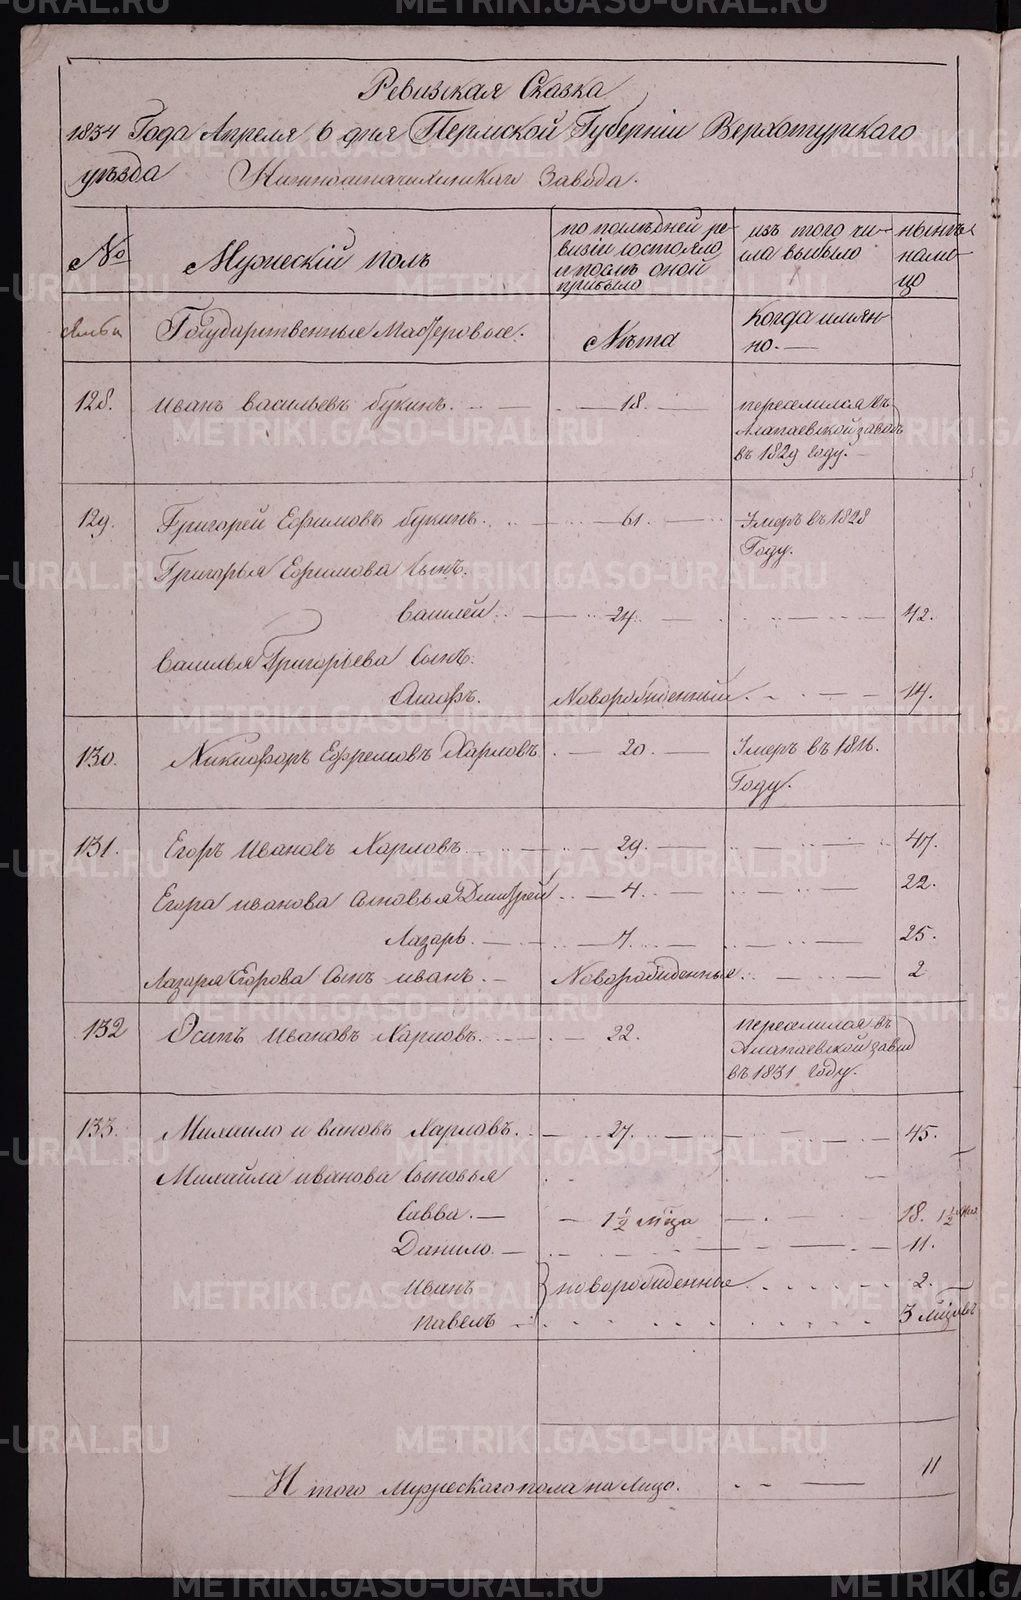 Ревизская Сказка
1834 Года Апреля 6 дня Пермской Губерніи Верхотурскаго
уѣзда Нижнесалдинскаго Завода.
№
Мужескій полъ
по послѣдней ре-
визіи состояло
и послѣ оной
прибыло
изъ того чи-
сла выбыло
нынѣ
нали-
цо
Государственные Мастеровые.
Лѣта
Когда имян-
но. —
128. Иванъ Васильевъ Букинъ. 18. переселился въ
Алапаевской заводъ
въ 1829 Году.
129. Григорей Ефимовъ Букинъ. 61. Умеръ въ 1828
Году.
Григорья Ефимова Сынъ.
Василей. 24. 42.
Василья Григорьева Сынъ.
Новорожденный 14.
130. Никифоръ Ефремовъ Харловъ. 20. Умеръ въ 1816.
Году.
131. Егоръ Ивановъ Харловъ. 29. 47.
Егора Иванова Сыновья Дмитрей 4. 22.
Лазарь. 7. 25.
Лазаря Егорова Сынъ Иванъ. Новорожденные 2
132 Осипъ Ивановъ Харловъ. 22. переселился въ
Алапаевской завод
въ 1831 Году.
133. Михаило Ивановъ Харловъ. 27. 45.
Михайла Иванова Сыновья
Савва. 1 1/2 мѣца 18. 1 1/2
Данило. 11.
Иванъ новорожденные 2.
Павелъ 3 мѣцовъ
Итого Мужескаго пола на Лицо. 11
METRIKI.GASO-URAL.RU